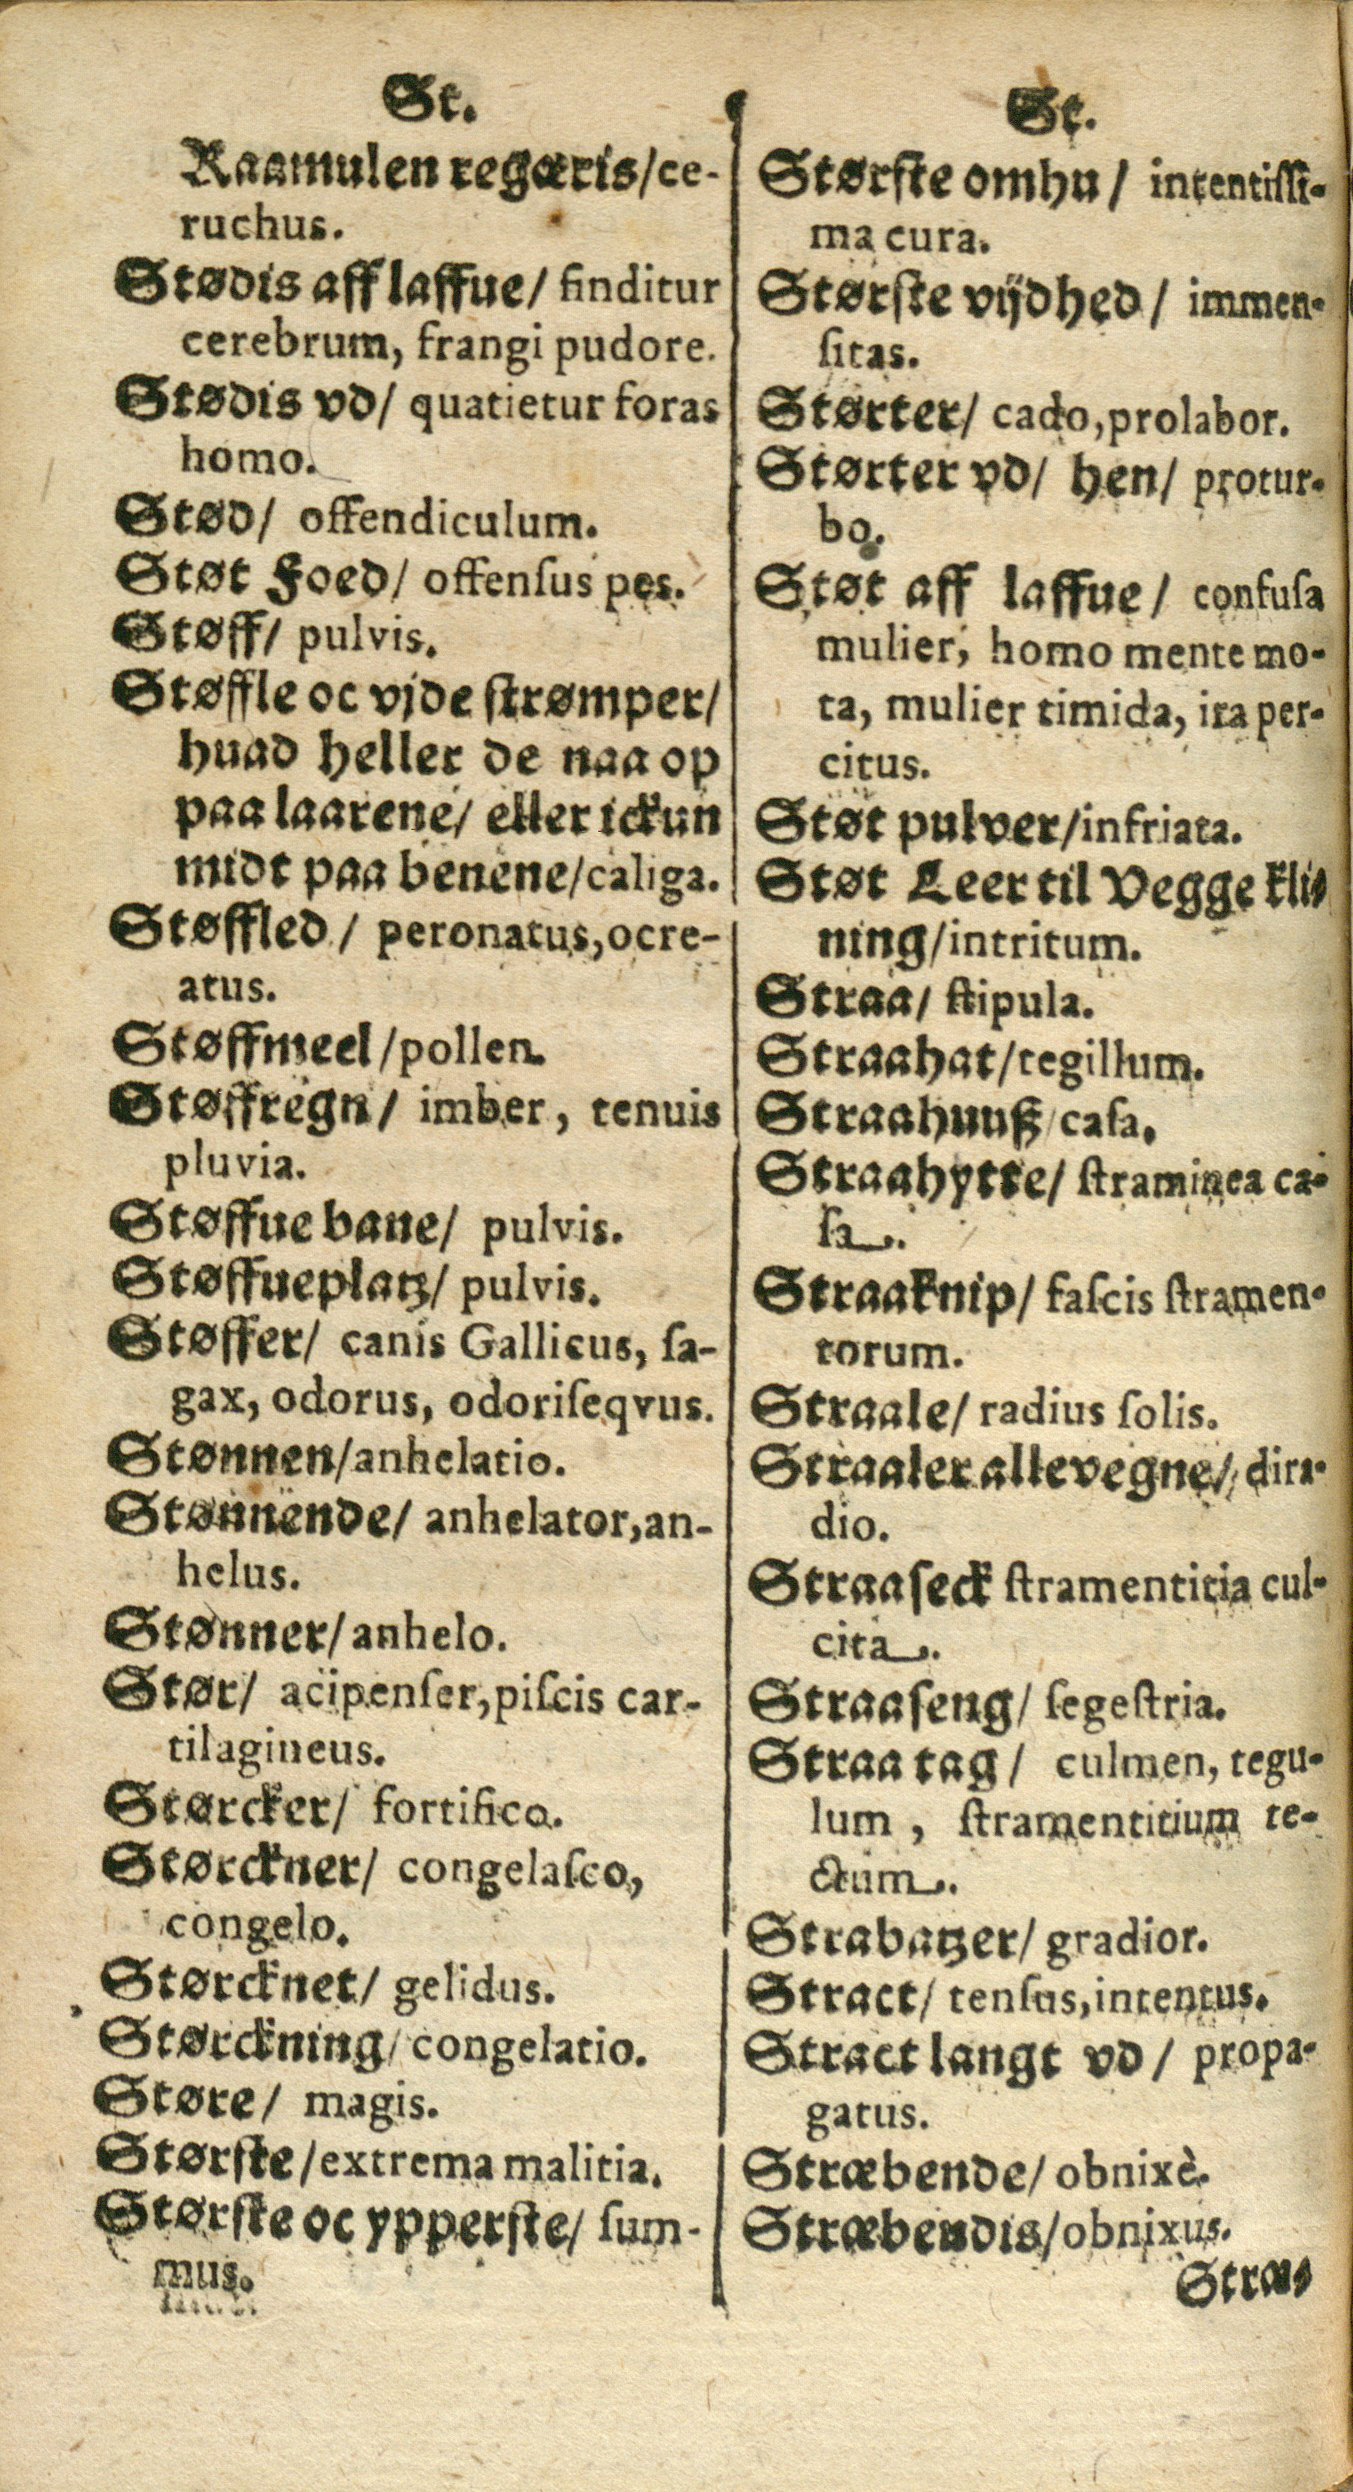 St.
Raamulen regæris/ce-
ruchus.
Stødis aff laffue/ finditur
cerebrum, frangi pudore.
Stødis vd/ quatietur foras
homo.
Stød/ offendiculum.
Støt Foed/ offenſus pes.
Støff/ pulvis.
Støffle oc vjde ſtrømper/
huad heller de naa op
paa laarene/ eller ickun
midt paa benene/caliga.
Støffled/ peronatus,ocre-
atus.
Støffmeel/pollen.
Støffregn/ imber, tenuis
pluvia.
Støffue bane/ pulvis.
Støffueplatz/ pulvis.
Støffer/ canis Gallicus, ſa-
gax, odorus, odoriſeqvus.
Stønnen/anhelatio.
Stønnende/ anhelator,an-
helus.
Stønner/anhelo.
Stør/ acipenſer,piſcis car-
tilagineus.
Størcker/ fortifico.
Størckner/ congelaſco,
congelo.
Størcknet/ gelidus.
Størckning/congelatio.
Støre/ magis.
Størſte/extrema malitia.
Størſte oc ypperſte/ ſum-
mus.
St.
Størſte omhu/ intentiſſi-
ma cura.
Størſte vijdhed/ immen-
ſitas.
Størter/ cado,prolabor.
Størter vd/ hen/ protur-
bo.
Støt aff laffue/ confuſa
mulier, homo mente mo-
ta, mulier timida, ira per-
citus.
Støt pulver/infriata.
Støt Leer til Vegge kli-
ning/intritum.
Straa/ ſtipula.
Straahat/tegillum.
Straahuuß/caſa.
Straahytte/ ſtraminea ca-
ſa.
Straaknip/ faſcis ſtramen-
torum.
Straale/ radius ſolis.
Straaler allevegne/ dira-
dio.
Straaſeck ſtramentitia cul-
cita.
Straaſeng/ ſegeſtria.
Straa tag/ culmen, tegu-
lum, ſtramentitium te-
ctum.
Strabatzer/ gradior.
Stract/ tenſus,intentus.
Stract langt vd/ propa-
gatus.
Stræbende/ obnixè.
Stræbendis/obnixus.
Stræ-